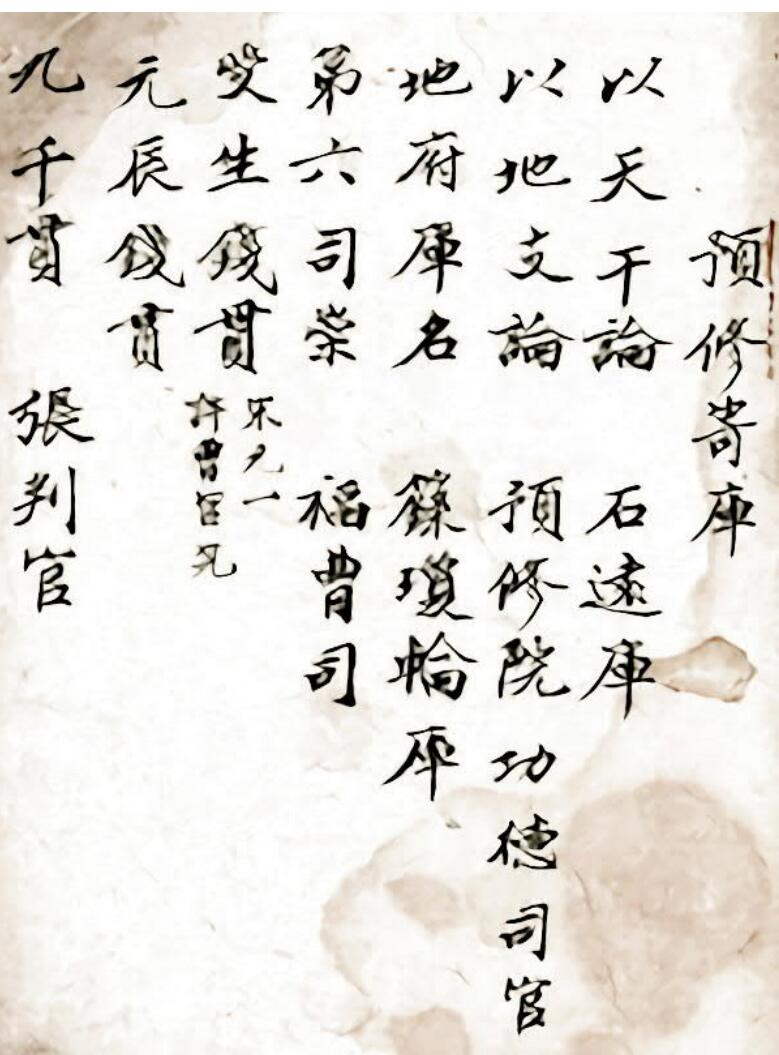 預修寄庫
以天干論 石遠庫
以地支論 預修院功德司官
地府庫名 籙瓊輪庫
第六司崇 福曹司
受生錢貫
許曹官
元辰錢貫
九千貫 張判官